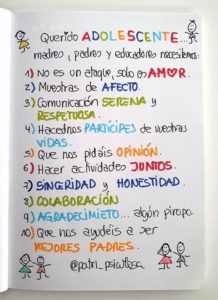 Querido ADOLESCENTE...
madres, padres y educadores necesitamos:
1) No es un ataque, solo es AMOR.
2) Muestras de AFECTO.
3) Comunicación SERENA y
RESPETUOSA.
4) Hacednos PARTÍCIPES de vuestras
VIDAS.
5) Que nos pidáis OPINIÓN.
6) Hacer actividades JUNTOS.
7) SINCERIDAD y HONESTIDAD.
8) COLABORACIÓN
9) AGRADECIMIENTO... algún piropo.
10) Que nos ayudéis a ser
MEJORES PADRES.
@patri_psicologa